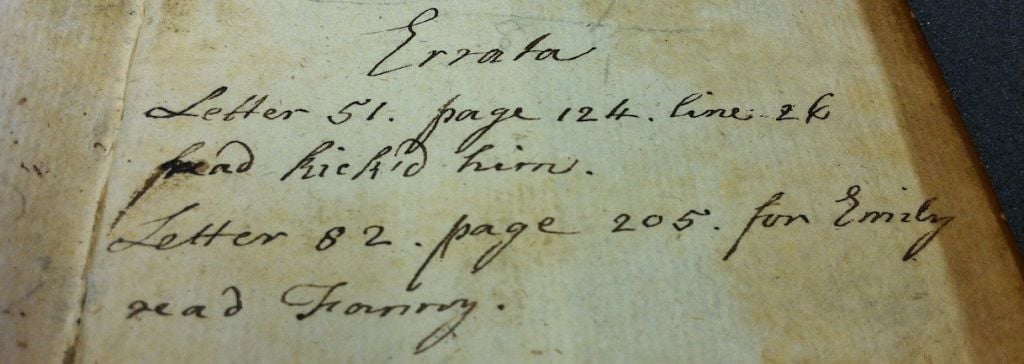 Errata
Letter 51. page 124. line 26
read kick'd him.
Letter 82. page 205. for Emily
read Fanny.